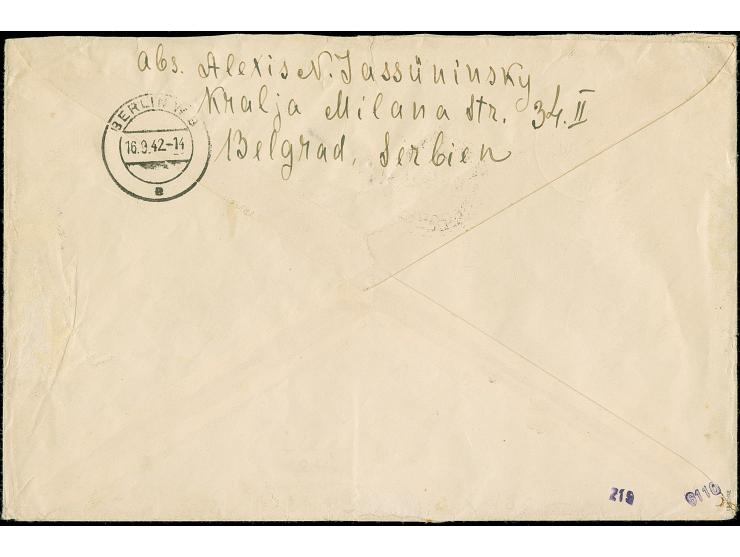 Abs. Alexis N. Jassüninsky
Kralja Milana Str. 34.II
Belgrad, Serbien
BERLIN W 8
16.9.42-14
a
219
6110